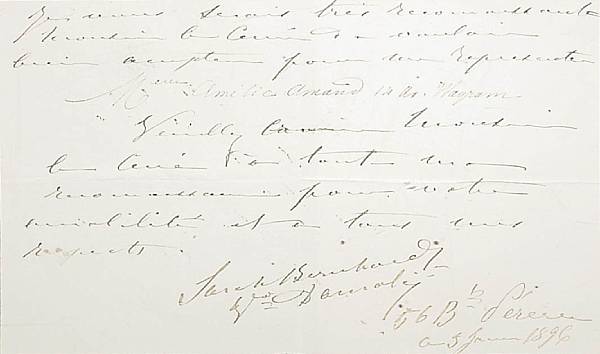 je vous serais très reconnaissante
Monsieur le Curé de vouloir
bien accepter pour me représenter
Mme Amélie Amand 14 av. Wagram
Veuillez Monsieur
le Curé à toute ma
reconnaissance pour votre
amabilité et à tous mes
respects.
Sarah Bernhardt
Vve Damala
56 Bd Péreire
5 1896